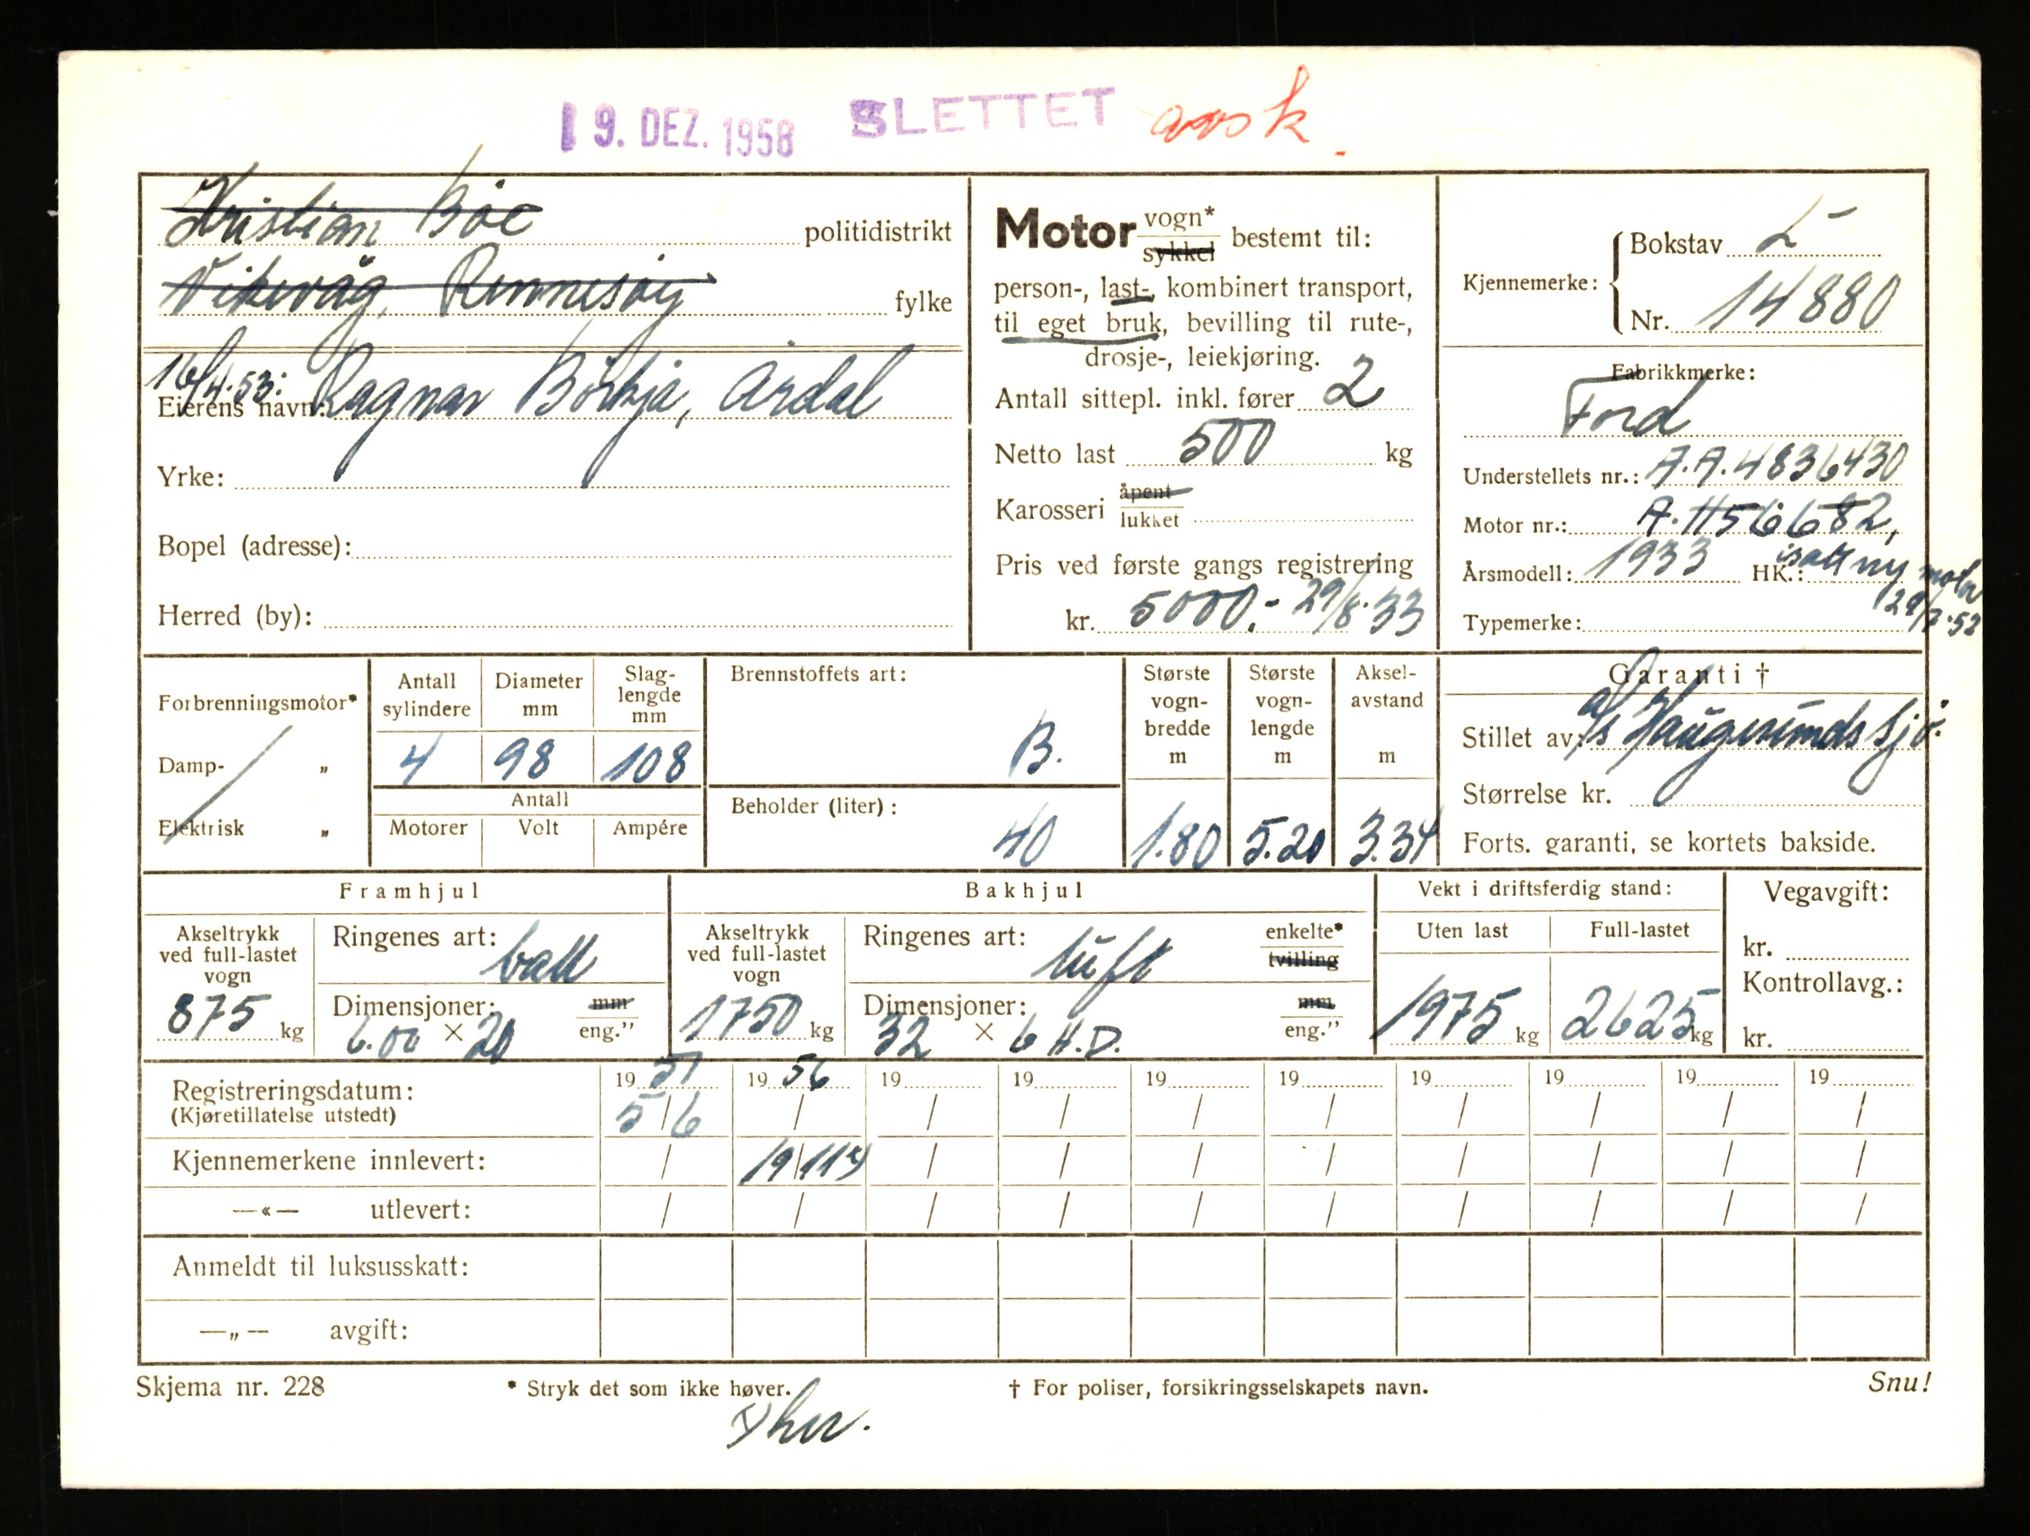 19. DEZ. 1958 SLETTET avsk.
Kristian Böe politidistrikt
Vikevåg, Rennesøy fylke
16/4.53:
Eierens navn: Ragnar Börkja, Årdal
Yrke:
Bopel (adresse):
Herred (by):
Motor vogn* sykkel bestemt til:
person-, last-, kombinert transport,
til eget bruk, bevilling til rute-,
drosje-, leiekjøring.
Antall sittepl. inkl. fører 2
Netto last 500 kg
Karosseri åpent lukket
Pris ved første gangs registrering
kr. 5000.- 29/8.33
Kjennemerke: Bokstav L
Nr. 14880
Fabrikkmerke:
Ford
Understellets nr.: A.A.4836430
Motor nr.: A.H56682,
isatt ny motor
Årsmodell: 1933 HK.:
Typemerke:
Forbrenningsmotor*
Damp- „
Elektrisk „
Antall sylindere 4
Diameter mm 98
Slaglengde mm 108
Antall
Motorer Volt Ampére
Brennstoffets art: B.
Beholder (liter): 40
Største vognbredde m 1.80
Største vognlengde m 5.20
Akselavstand m 3.34
Garanti †
Stillet av: A/s Haugesunds Sjö.
Størrelse kr.
Forts. garanti, se kortets bakside.
Framhjul
Akseltrykk ved full-lastet vogn 875 kg
Ringenes art: ball
Dimensjoner: 6.00 × 20 mm eng.”
Bakhjul
Akseltrykk ved full-lastet vogn 1750 kg
Ringenes art: luft enkelte* tvilling
Dimensjoner: 32 × 6 H.D. mm eng.”
Vekt i driftsferdig stand:
Uten last 1975 kg
Full-lastet 2625 kg
Vegavgift:
kr.
Kontrollavg.:
kr.
19 51 19 56 19 19 19 19 19 19 19 19
Registreringsdatum: 5/6 / / / / / / / / /
(Kjøretillatelse utstedt)
Kjennemerkene innlevert: / 19/11 / / / / / / / /
—«— utlevert: / / / / / / / / / /
Anmeldt til luksusskatt:
—„— avgift:
Skjema nr. 228 * Stryk det som ikke høver. † For poliser, forsikringsselskapets navn. Snu!